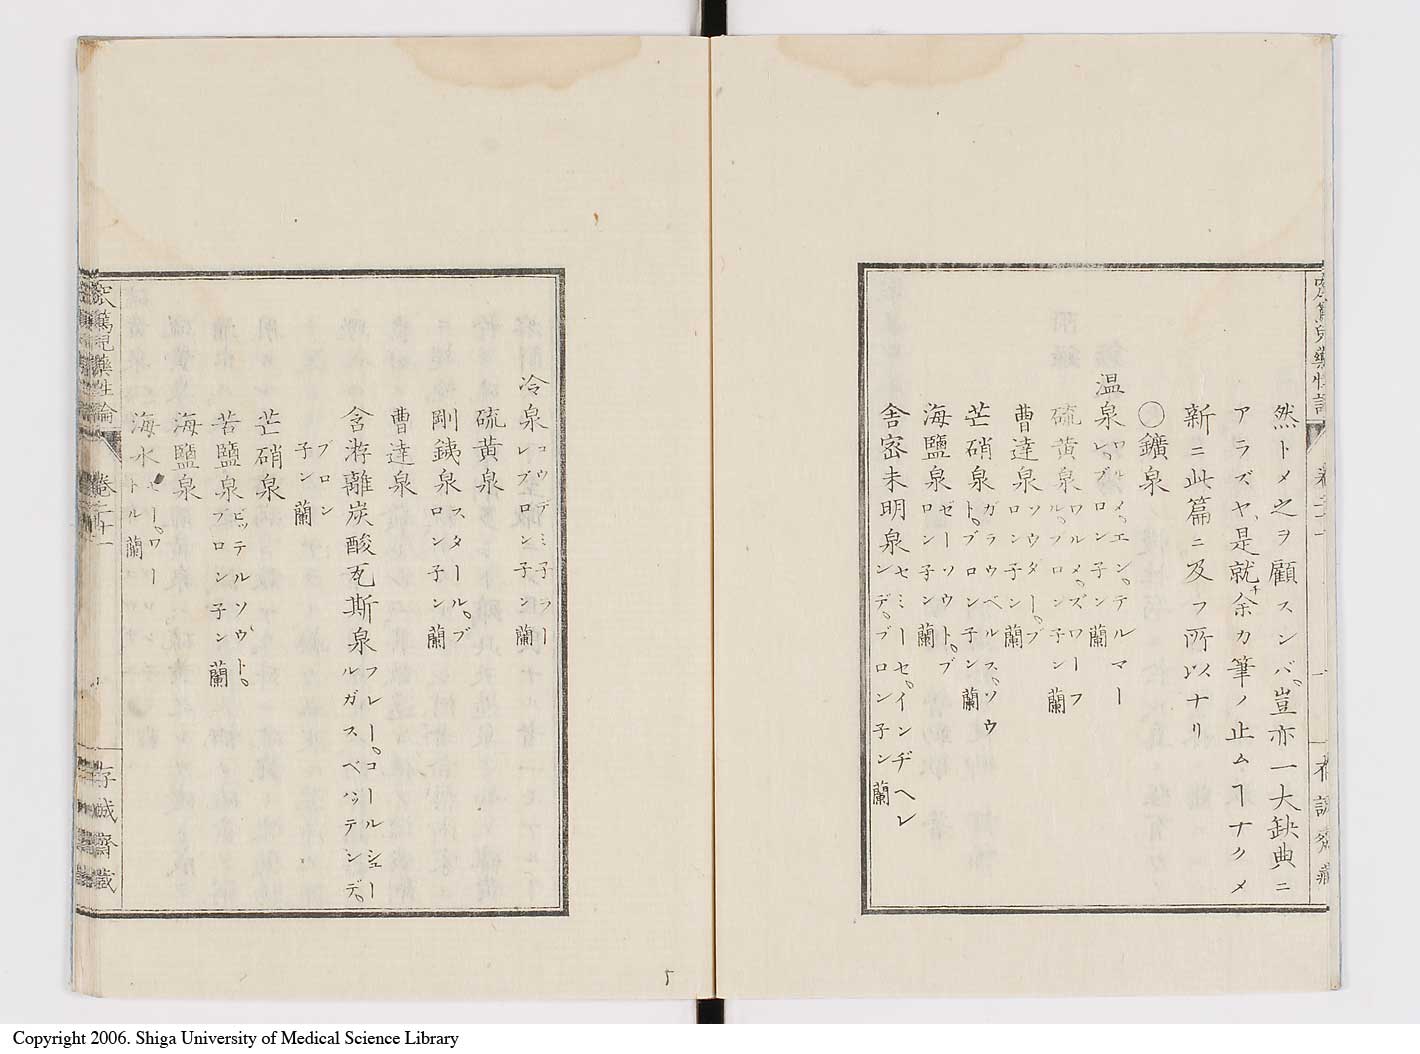 然トメ之ヲ顧スンバ豈亦一大缺典ニ
アラズヤ是就余カ筆ノ止ムヿナクメ
新ニ此篇ニ及フ所以ナリ
〇鑛泉
温泉 ワルメ、エン、テルマーレ、ブロン子ン 蘭
硫黄泉 ワルメ、ズワーフル、ブロン子ン 蘭
曹達泉 ソウダー、ブロン子ン 蘭
芒硝泉 ガラウベルス、ソウト、ブロン子ン 蘭
海鹽泉 ゼーソウト、ブロン子ン 蘭
舎密未明泉 セミーセ、インヂヘレンデ、ブロン子ン 蘭
冷泉 コウデミ子ラーレブロン子ン 蘭
硫黄泉
剛銕泉 スタール、ブロン子ン 蘭
曹達泉
含游離炭酸瓦斯泉 フレー、コールシュールガスベハッテンデ、
ブロン子ン 蘭
芒硝泉
苦鹽泉 ビッテルソウト、ブロン子ン 蘭
海鹽泉
海水 セー、ワートル 蘭
篤兒藥性論 卷二十一
存誠齋藏
Copyright 2006. Shiga University of Medical Science Library